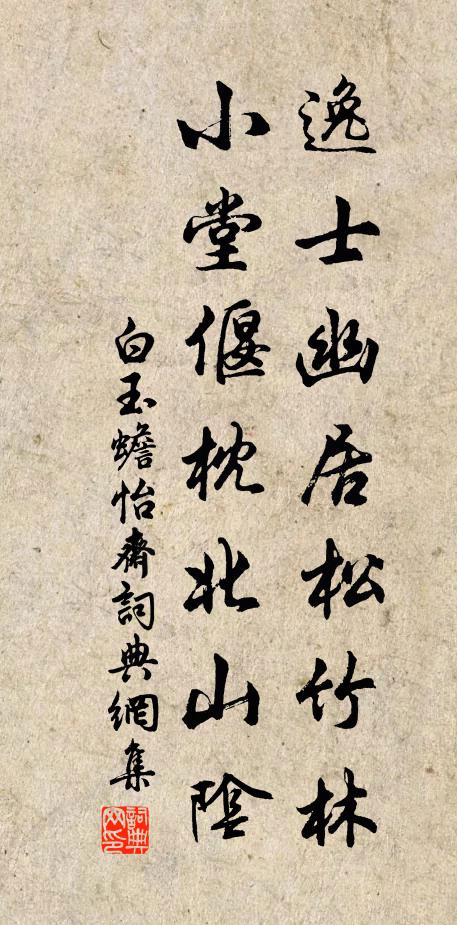 逸士幽居松竹林
小堂偃枕北山陰
白玉蟾怡齋詞典網集
詞典網印